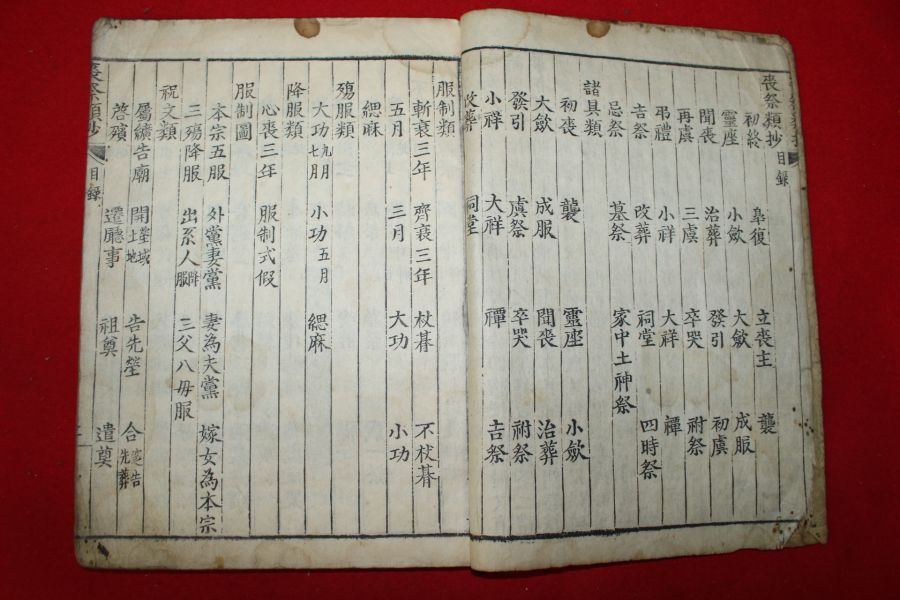 喪祭類抄目録
初終 皐復 立喪主 襲
靈座 小斂 大斂 成服
聞喪 治葬 發引 初虞
再虞 三虞 卒哭 祔祭
弔禮 小祥 大祥 禫
吉祭 改葬 祠堂 四時祭
忌祭 墓祭 家中土神祭
諸具類
初喪 襲 靈座 小斂
大斂 成服 聞喪 治葬
發引 虞祭 卒哭 祔祭
小祥 大祥 禫 吉祭
改葬 祠堂
服制類
斬衰三年 齊衰三年 杖朞 不杖朞
五月 三月 大功 小功
緦麻
殤服類
大功九月七月 小功五月 緦麻
降服類
心喪三年 服制式假
服制圖
本宗五服 外黨妻黨 妻為夫黨 嫁女為本宗
三殤降服 出系人服降 三父八母服
祝文類
屬纊告廟 開塋域土地 告先塋 合葬告先
啓殯 遷廳事 祖奠 遣奠
喪祭類抄 目録